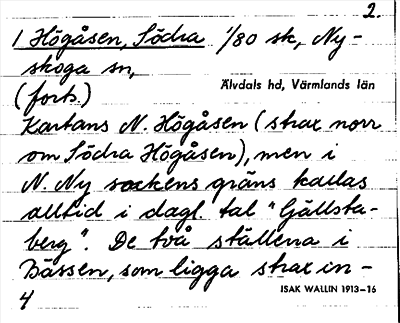 2.
1 Högåsen, Södra 1/80 sk, Ny-
skoga sn,
Älvdals hd, Värmlands län
(forts.)
Kartans N. Högåsen (strax norr
om Södra Högåsen), men i
N. Ny sockens gräns kallas
alltid i dagl. tal "Gjällsta-
berg". De två ställena i
Bässen, som ligga strax in-
ISAK WALLIN 1913–16
4